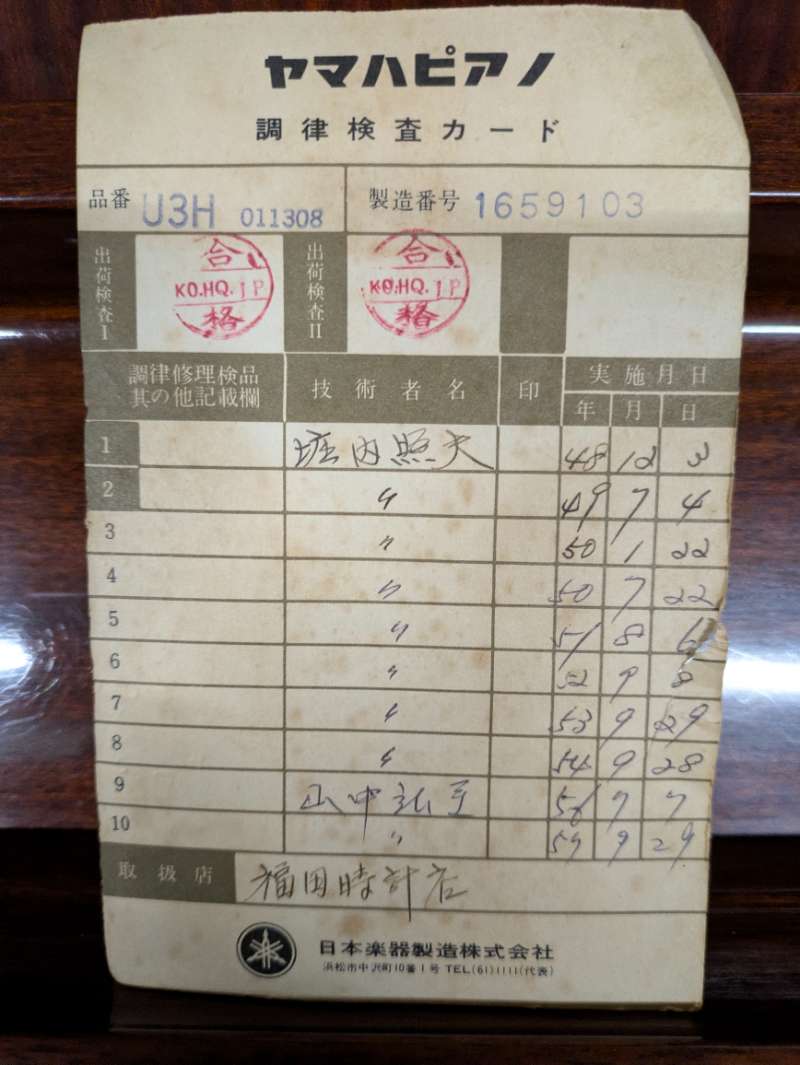 ヤマハピアノ
調律検査カード
品番 U3H 011308 製造番号 1659103
出荷検査I 合格 KO.HQ. 1P 出荷検査II 合格 KO.HQ. 1P
調律修理検品其の他記載欄 技術者名 印 実施月日
年 月 日
1 堀内照夫 48 12 3
2 〃 49 7 4
3 〃 50 1 22
4 〃 50 7 22
5 〃 51 8 6
6 〃 52 9 8
7 〃 53 9 29
8 〃 54 9 28
9 山中 56 7 7
10 〃 9 29
取扱店 福田時計店
日本楽器製造株式会社
浜松市中沢町10番1号 TEL(61)1111(代表)